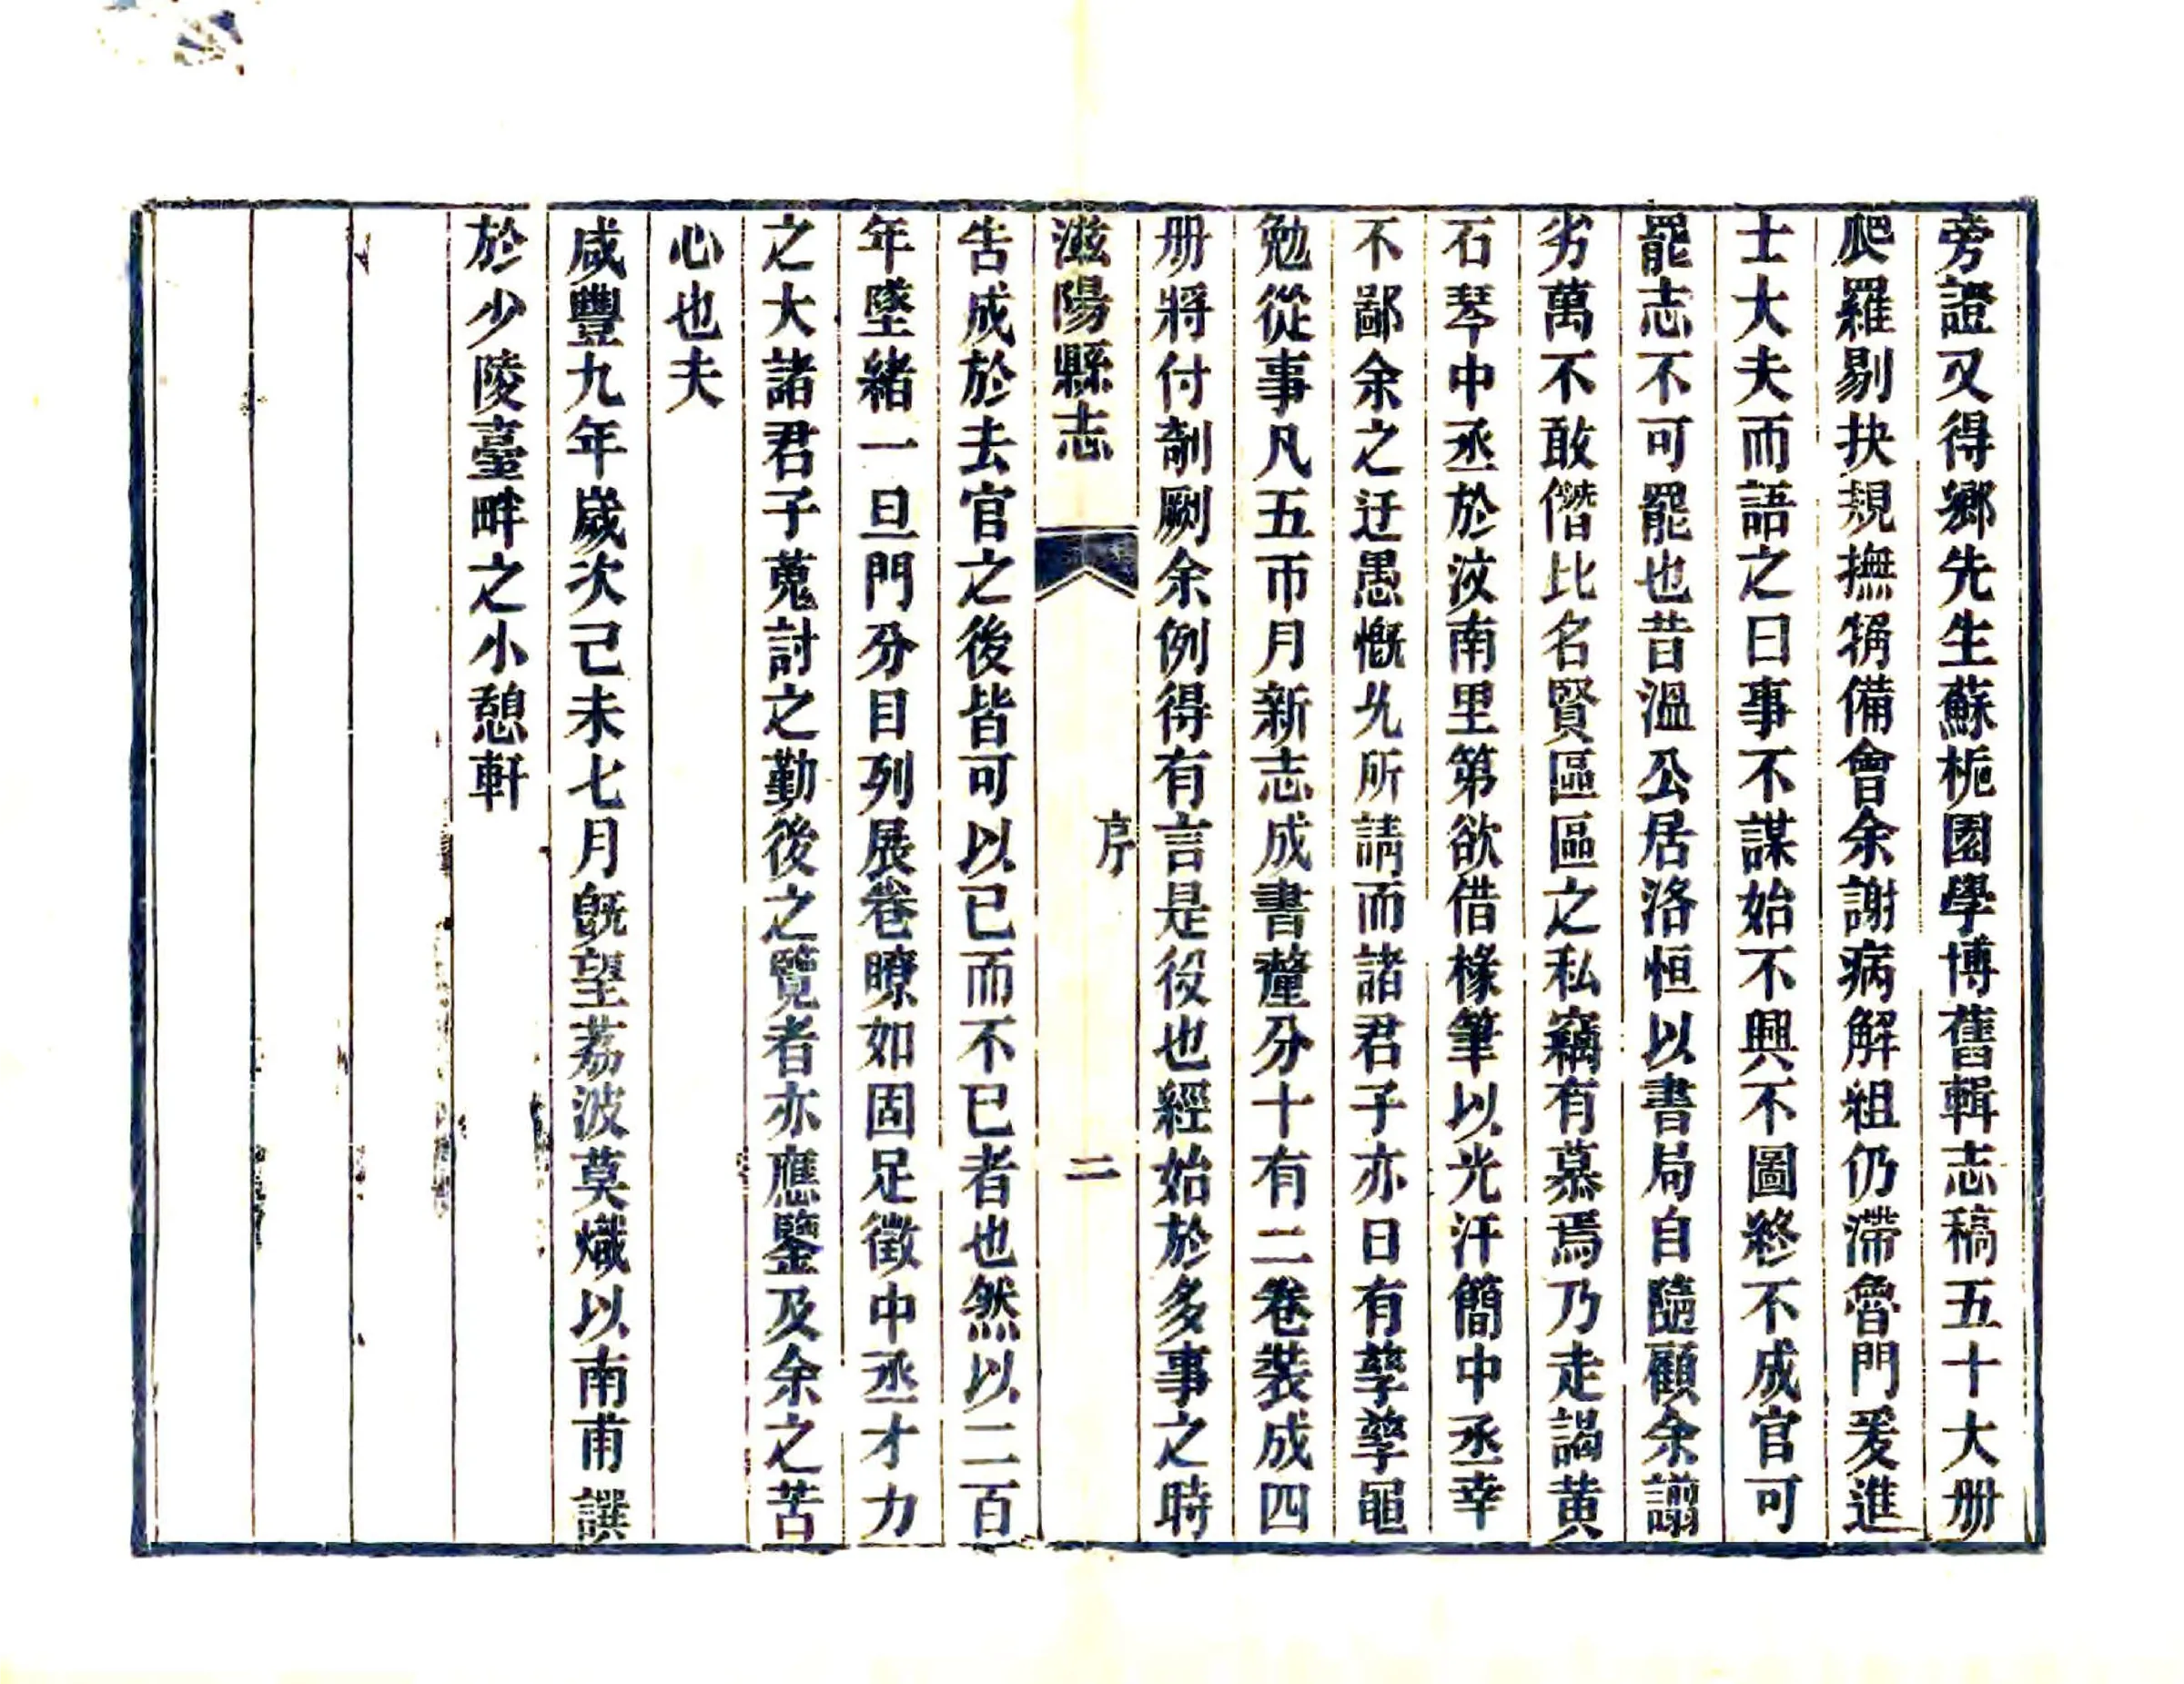 旁證又得鄉先生蘇栀園學博舊輯志稿五十大册
爬羅剔抉規撫犕備會余謝病解組仍滯魯門爰進
士大夫而語之曰事不謀始不興不圖終不成官可
罷志不可罷也昔溫公居洛恒以書局自隨顧余謭
劣萬不敢僭比名賢區區之私竊有慕焉乃走謁黃
石琴中丞於汶南里第欲借椽筆以光汗簡中丞幸
不鄙余之迂愚慨允所請而諸君子亦日有孳孳黽
勉從事凡五帀月新志成書釐分十有二卷裝成四
册將付剞劂余例得有言是役也經始於多事之時
滋陽縣志 序 二
告成於去官之後皆可以已而不已者也然以二百
年墜緒一旦門分目列展卷瞭如固足徵中丞才力
之大諸君子蒐討之勤後之覽者亦應鑒及余之苦
心也夫
咸豐九年歲次己未七月旣望荔波莫熾以南甫譔
於少陵臺畔之小憩軒